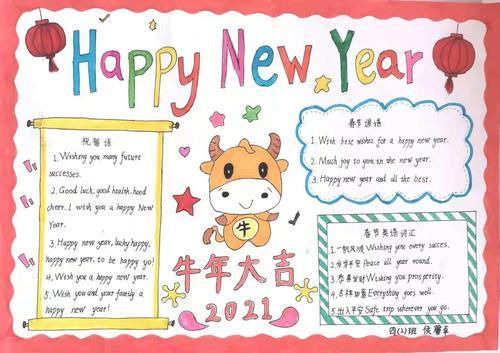 Happy New Year
祝福语
1. Wishing you many future
successes.
2. Good luck, good health, hood
cheer. I wish you a happy New
Year.
3. Happy new year, lucky happy,
happy new year. to be happy yo!
4. Wish you a happy new year.
5. Wish you and your family a
happy new year!
春节谚语
1. Wish best wishes for a happy new year.
2. Much joy to you in the new year.
3. Happy new year and all the best.
牛
牛年大吉
2021
春节英语词汇
1.一帆风顺 Wishing you every succes.
2.岁岁平安 Peace all year round.
3.恭喜发财 Wishing you prosperity.
4.吉祥如意 Everything goes well.
5.出入平安 Safe trip wherever you go.
四(2)班 侯